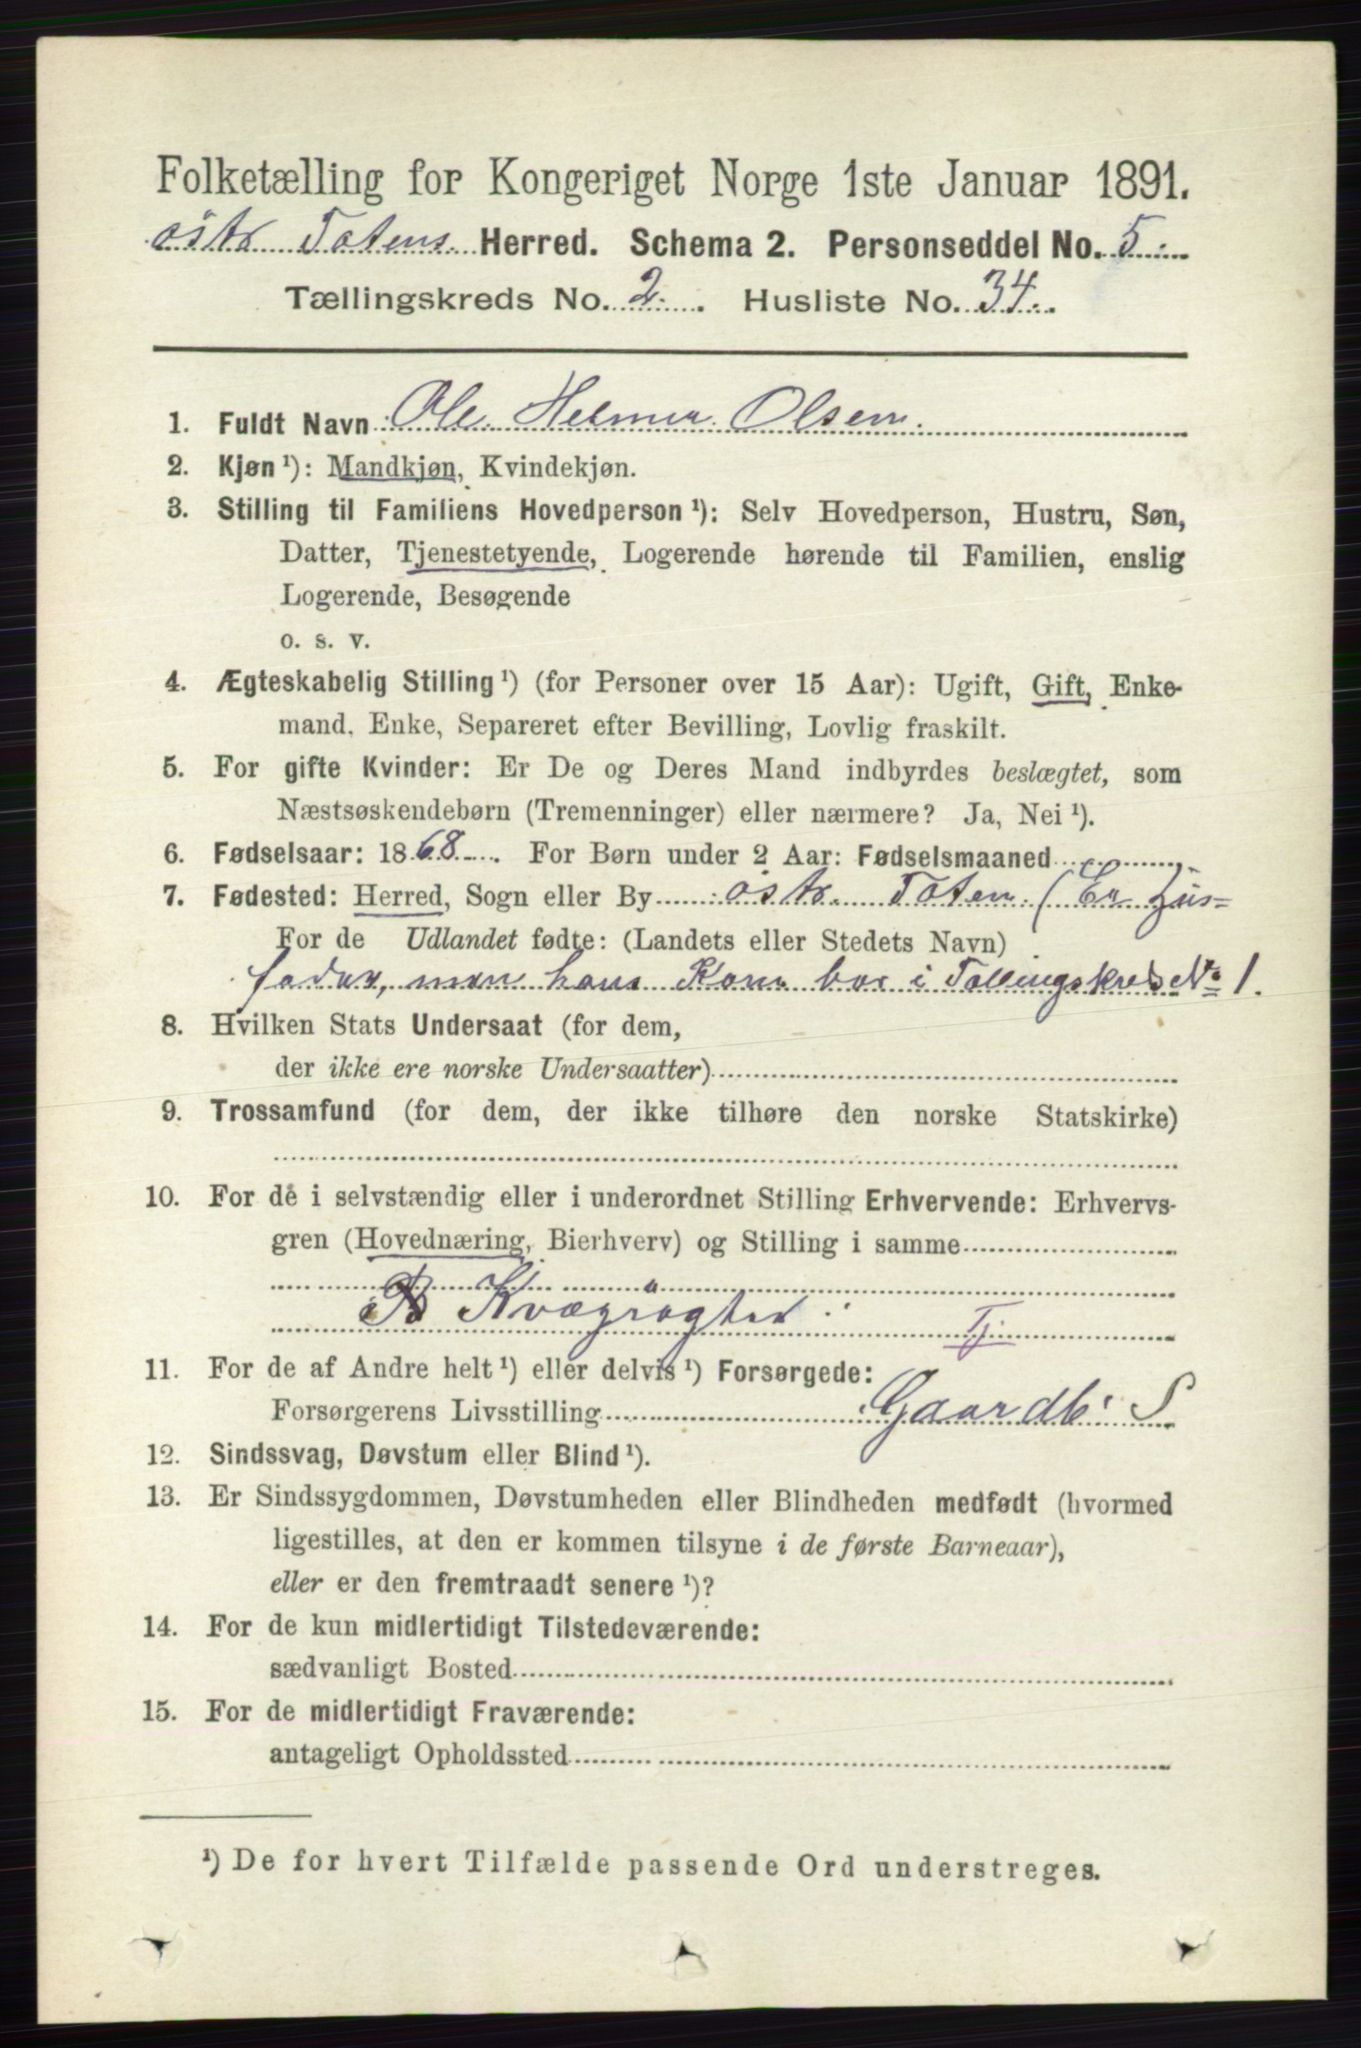 Folketælling for Kongeriget Norge 1ste Januar 1891.
østr Totens Herred. Schema 2. Personseddel No. 5.
Tællingskreds No. 2. Husliste No. 34.
1. Fuldt Navn Ole Helmer Olsen.
2. Kjøn ¹): Mandkjøn, Kvindekjøn.
3. Stilling til Familiens Hovedperson ¹): Selv Hovedperson, Hustru, Søn,
Datter, Tjenestetyende, Logerende hørende til Familien, enslig
Logerende, Besøgende
o. s. v.
4. Ægteskabelig Stilling ¹) (for Personer over 15 Aar): Ugift, Gift, Enke-
mand, Enke, Separeret efter Bevilling, Lovlig fraskilt.
5. For gifte Kvinder: Er De og Deres Mand indbyrdes beslægtet, som
Næstsøskendebørn (Tremenninger) eller nærmere? Ja, Nei ¹).
6. Fødselsaar: 1868. For Børn under 2 Aar: Fødselsmaaned
7. Fødested: Herred, Sogn eller By østr. Toten. (Er Hus=
For de Udlandet fødte: (Landets eller Stedets Navn)
fader, men hans Kone bor i Tællingskreds No 1.
8. Hvilken Stats Undersaat (for dem,
der ikke ere norske Undersaatter)
9. Trossamfund (for dem, der ikke tilhøre den norske Statskirke)
10. For de i selvstændig eller i underordnet Stilling Erhvervende: Erhvervs-
gren (Hovednæring, Bierhverv) og Stilling i samme
Kvægrøgter Tj.
11. For de af Andre helt ¹) eller delvis ¹) Forsørgede:
Forsørgerens Livsstilling Gaardb. S
12. Sindssvag, Døvstum eller Blind ¹).
13. Er Sindssygdommen, Døvstumheden eller Blindheden medfødt (hvormed
ligestilles, at den er kommen tilsyne i de første Barneaar),
eller er den fremtraadt senere ¹)?
14. For de kun midlertidigt Tilstedeværende:
sædvanligt Bosted
15. For de midlertidigt Fraværende:
antageligt Opholdssted
¹) De for hvert Tilfælde passende Ord understreges.